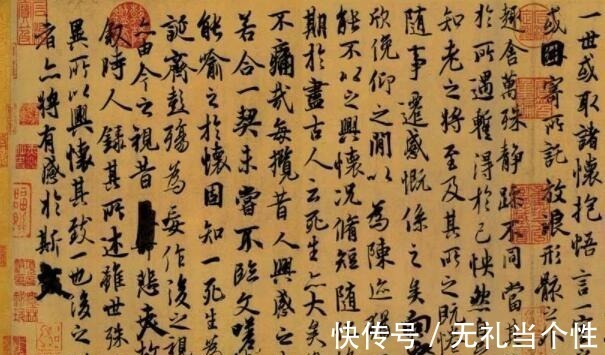 一世或取諸懷抱悟言一
或因寄所託放浪形骸之
趣舍萬殊靜躁不同當
於所遇蹔得於己怏然
知老之將至及其所之既
隨事遷感慨係之矣向
欣俛仰之閒以為陳迹
能不以之興懷況脩短隨
期於盡古人云死生亦大矣
不痛哉每攬昔人興感之
若合一契未嘗不臨文嗟
能喻之於懷固知一死生
誕齊彭殤為妄作後之視
亦由今之視昔悲夫故
敘時人錄其所述雖世殊
異所以興懷其致一也後之
者亦將有感於斯文
快传号 / 无礼当个性